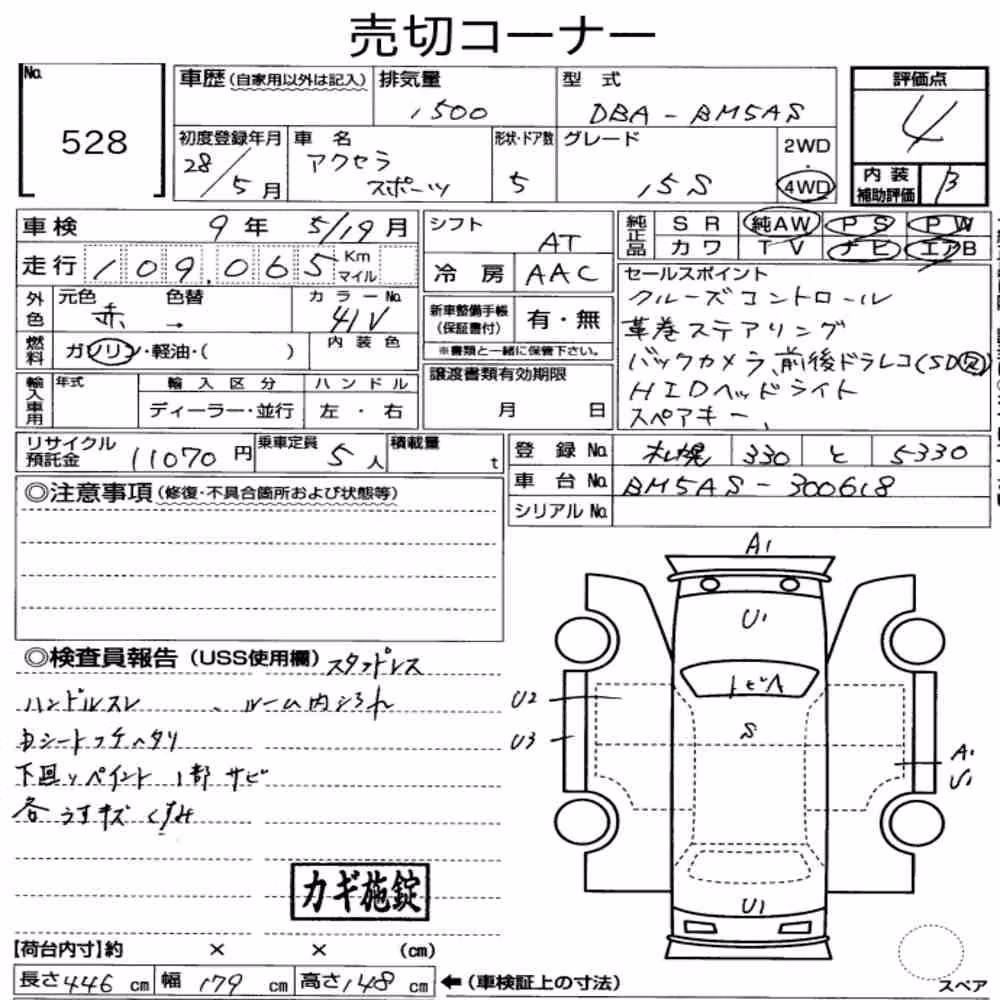 売切コーナー
No. 528
車歴(自家用以外は記入) 排気量 1500 型式 DBA-BM5AS 評価点 4
初度登録年月 28/5月 車名 アクセラ スポーツ 形状・ドア数 5 グレード 15S 2WD・4WD 内装補助評価 B
車検 9年 5/19月 シフト AT 純正品 SR 純AW PS PW
走行 109,065 Km マイル 冷房 AAC カワ TV ナビ エアB
外色 元色 赤 → 色替 カラーNo. 41V 新車整備手帳(保証書付) 有・無 セールスポイント
クルーズコントロール
革巻ステアリング
バックカメラ、前後ドラレコ(SD欠)
HIDヘッドライト
スペアキー、
燃料 ガソリン・軽油・( ) 内装色 ※書類と一緒に保管下さい。
輸入車用 年式 輸入区分 ハンドル 譲渡書類有効期限
ディーラー・並行 左・右 月 日
リサイクル預託金 11070円 乗車定員 5人 積載量 t 登録No. 札幌 330 と 5330
車台No. BM5AS-300618
シリアルNo.
◎注意事項(修復・不具合箇所および状態等)
◎検査員報告(USS使用欄)スタッドレス
ハンドルスレ 、ルーム内シミ
シートフチヘタリ
下回りペイント 1部サビ
各うすキズ
カギ施錠
A1
U1
トビA
U2
S
U3
A1
U1
U1
【荷台内寸】約 × × (cm)
長さ446cm 幅179cm 高さ148cm ←(車検証上の寸法)
スペア